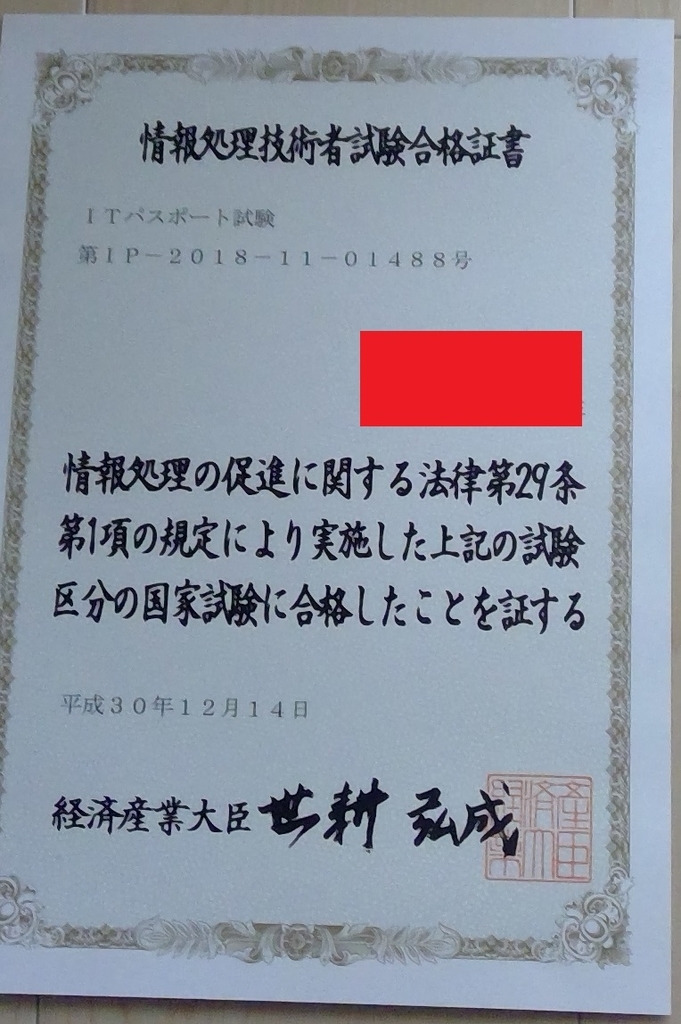 情報処理技術者試験合格証書
ＩＴパスポート試験
第ＩＰ－２０１８－１１－０１４８８号
情報処理の促進に関する法律第29条
第1項の規定により実施した上記の試験
区分の国家試験に合格したことを証する
平成３０年１２月１４日
経済産業大臣 世耕 弘成